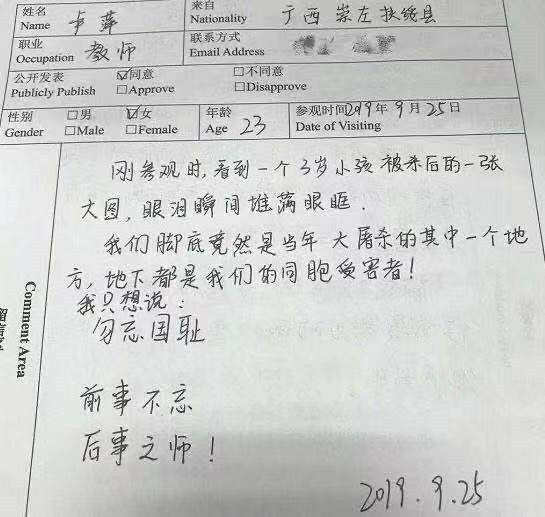 姓名 卢萍 来自 广西 崇左 扶绥县
Name Nationality
职业 教师 联系方式
Occupation Email Address
公开发表 ☑同意 □不同意
Publicly Publish □Approve □Disapprove
性别 □男 ☑女 年龄 23 参观时间2019年9月25日
Gender □Male □Female Age Date of Visiting
刚参观时,看到一个3岁小孩被杀后的一张
大图,眼泪瞬间堆满眼眶.
我们脚底竟然是当年大屠杀的其中一个地
方,地下都是我们的同胞受害者!
我只想说:
勿忘国耻
前事不忘
后事之师!
2019.9.25
Comment Area